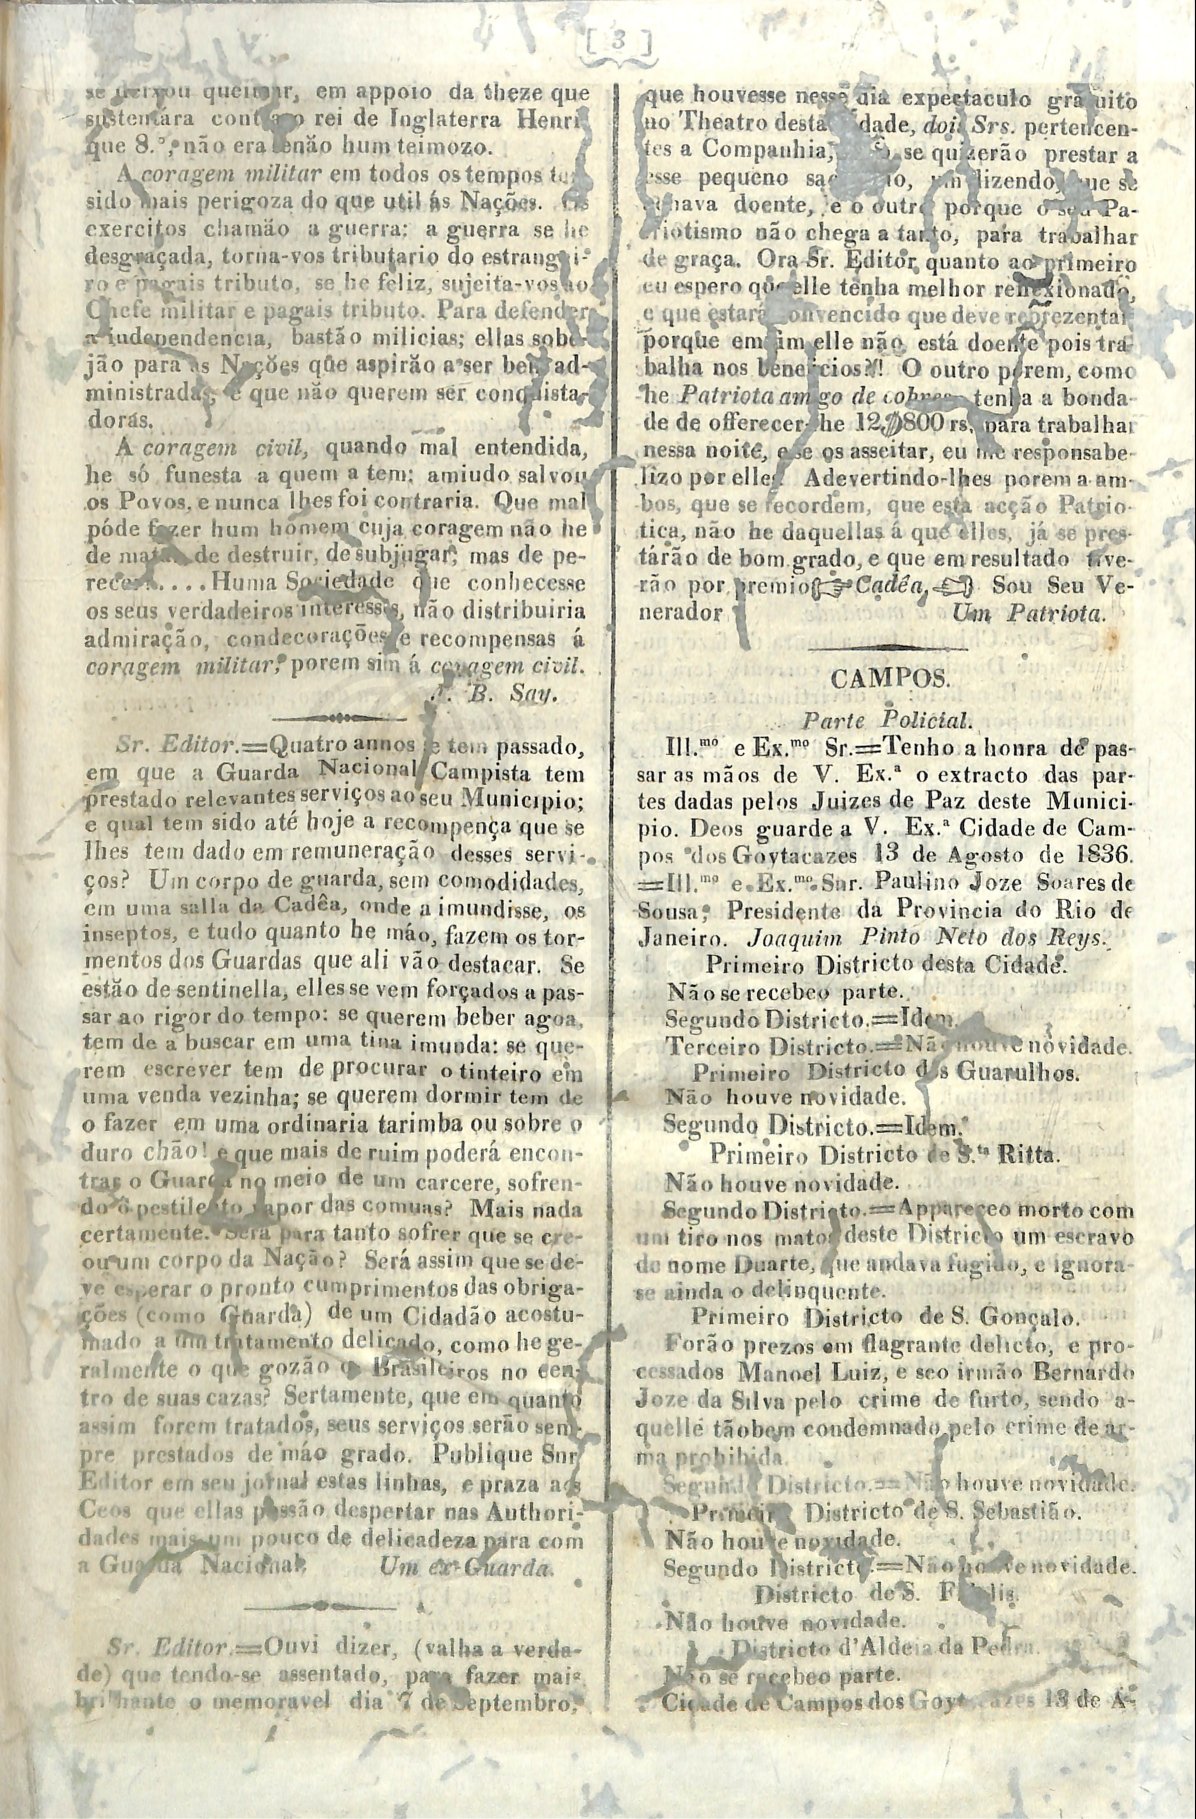 [ 3 ]
se deixou queimar, em appoio da theze que
sustentara contra o rei de Inglaterra Henri-
que 8.º, não era senão hum teimozo.
A coragem militar em todos os tempos tem
sido mais perigoza do que util ás Nações. Os
exercitos chamão a guerra: a guerra se he
desgraçada, torna-vos tributario do estrangei-
ro e pagais tributo, se he feliz, sujeita-vos ao
Chefe militar e pagais tributo. Para defender
a independencia, bastão milicias; ellas sobe-
jão para as Nações que aspirão a ser bem ad-
ministradas, e que não querem ser conquista-
doras.
A coragem civil, quando mal entendida,
he só funesta a quem a tem; amiudo salvou
os Povos, e nunca lhes foi contraria. Que mal
póde fazer hum homem cuja coragem não he
de matar, de destruir, de subjugar; mas de pe-
recer.....Huma Sociedade que conhecesse
os seus verdadeiros interesses, não distribuiria
admiração, condecorações e recompensas á
coragem militar; porem sim á coragem civil.
J. B. Say.
Sr. Editor.=Quatro annos se tem passado,
em que a Guarda Nacional Campista tem
prestado relevantes serviços ao seu Municipio;
e qual tem sido até hoje a recompença que se
lhes tem dado em remuneração desses servi-
ços? Um corpo de guarda, sem comodidades,
em uma salla da Cadêa, onde a imundisse, os
inseptos, e tudo quanto he máo, fazem os tor-
mentos dos Guardas que ali vão destacar. Se
estão de sentinella, elles se vem forçados a pas-
sar ao rigor do tempo: se querem beber agoa,
tem de a buscar em uma tina imunda: se que-
rem escrever tem de procurar o tinteiro em
uma venda vezinha; se querem dormir tem de
o fazer em uma ordinaria tarimba ou sobre o
duro chão! e que mais de ruim poderá encon-
trar o Guarda no meio de um carcere, sofren-
do o pestilento vapor das comuas? Mais nada
certamente. Será para tanto sofrer que se cre-
ou um corpo da Nação? Será assim que se de-
ve esperar o pronto cumprimentos das obriga-
ções (como Guarda) de um Cidadão acostu-
mado a um tratamento delicado, como he ge-
ralmente o que gozão os Brasileiros no cen-
tro de suas cazas? Sertamente, que em quanto
assim forem tratados, seus serviços serão sem-
pre prestados de máo grado. Publique Snr
Editor em seu jornal estas linhas, e praza aos
Ceos que ellas possão despertar nas Authori-
dades mais um pouco de delicadeza para com
a Guarda Nacional. Um ex-Guarda.
Sr. Editor.=Ouvi dizer, (valha a verda-
de) que tendo-se assentado, para fazer mais
brilhante o memoravel dia 7 de Septembro,
que houvesse nesse dia expectaculo gratuito
no Theatro desta Cidade, dois Srs. pertencen-
tes a Companhia, se quizerão prestar a
esse pequeno sacrificio, um dizendo, que se
achava doente, e o outro porque o seu Pa-
triotismo não chega a tanto, para trabalhar
de graça. Ora Sr. Editor, quanto ao primeiro
eu espero que elle tenha melhor reflexionado,
e que estará convencido que deve reprezentar
porque em fim elle não está doente pois tra-
balha nos beneficios?! O outro porem, como
he Patriota amigo de cobres tenha a bonda-
de de offerecer-lhe 12$800 rs. para trabalhar
nessa noite, e se os asseitar, eu me responsabe-
lizo por elles. Adevertindo-lhes porem a am-
bos, que se recordem, que esta acção Patrio-
tica, não he daquellas á que elles, já se pres-
tárão de bom grado, e que em resultado tive-
rão por premio ☞ Cadêa, ☜ Sou Seu Ve-
nerador Um Patriota.
CAMPOS.
Parte Policial.
Ill.mo e Ex.mo Sr.=Tenho a honra de pas-
sar as mãos de V. Ex.a o extracto das par-
tes dadas pelos Juizes de Paz deste Munici-
pio. Deos guarde a V. Ex.a Cidade de Cam-
pos dos Goytacazes 13 de Agosto de 1836.
=Ill.mo e Ex.mo Snr. Paulino Joze Soares de
Sousa, Presidente da Provincia do Rio de
Janeiro. Joaquim Pinto Neto dos Reys.
Primeiro Districto desta Cidade.
Não se recebeo parte.
Segundo Districto.=Idem.
Terceiro Districto.=Não houve novidade.
Primeiro Districto dos Guarulhos.
Não houve novidade.
Segundo Districto.=Idem.
Primeiro Districto de S.ta Ritta.
Não houve novidade.
Segundo Districto.=Appareceo morto com
um tiro nos matos deste Districto um escravo
de nome Duarte, que andava fugido, e ignora-
se ainda o delinquente.
Primeiro Districto de S. Gonçalo.
Forão prezos em flagrante delicto, e pro-
cessados Manoel Luiz, e seo irmão Bernardo
Joze da Silva pelo crime de furto, sendo a-
quelle tãobem condemnado pelo crime de ar-
ma prohibida.
Segundo Districto.=Não houve novidade.
Primeiro Districto de S. Sebastião.
Não houve novidade.
Segundo Districto.=Não houve novidade.
Districto de S. Fidelis.
Não houve novidade.
Districto d'Aldeia da Pedra.
Não se recebeo parte.
Cidade de Campos dos Goytacazes 13 de A-